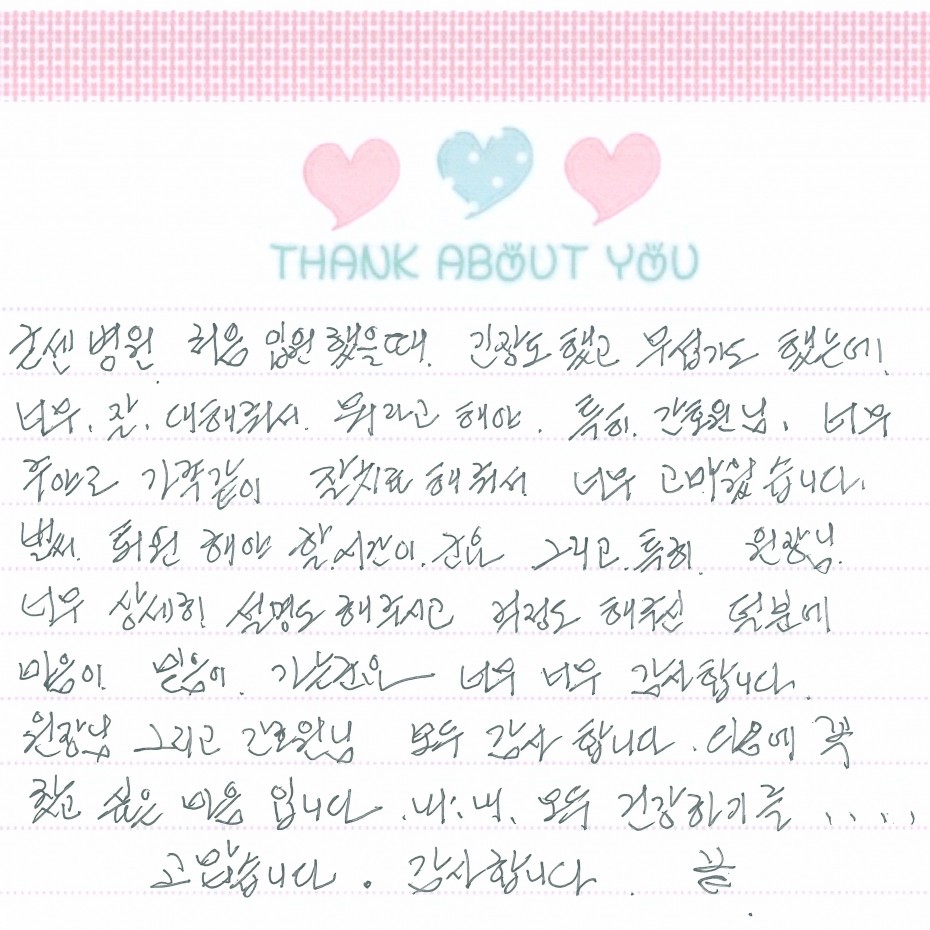 THANK ABOUT YOU
굳센병원 처음 입원했을때. 긴장도 했고 무섭기도 했는데.
너무. 잘. 대해줘서. 뭐라고 해야. 특히. 간호원님. 너무
가족같이 잘치료 해줘서 너무 고마웠습니다.
벌써. 퇴원 해야 할.시간이. 그리고.특히. 원장님.
너무 상세히 설명도 해주시고 걱정도 해주신 덕분에
마음이 믿음이. 가는군요 너무 너무 감사합니다.
원장님 그리고 간호원님 모두 감사 합니다. 다음에 꼭
찾고 싶은 마음 입니다. 내.내. 모두 건강하기를 ....
고맙습니다. 감사합니다. 끝